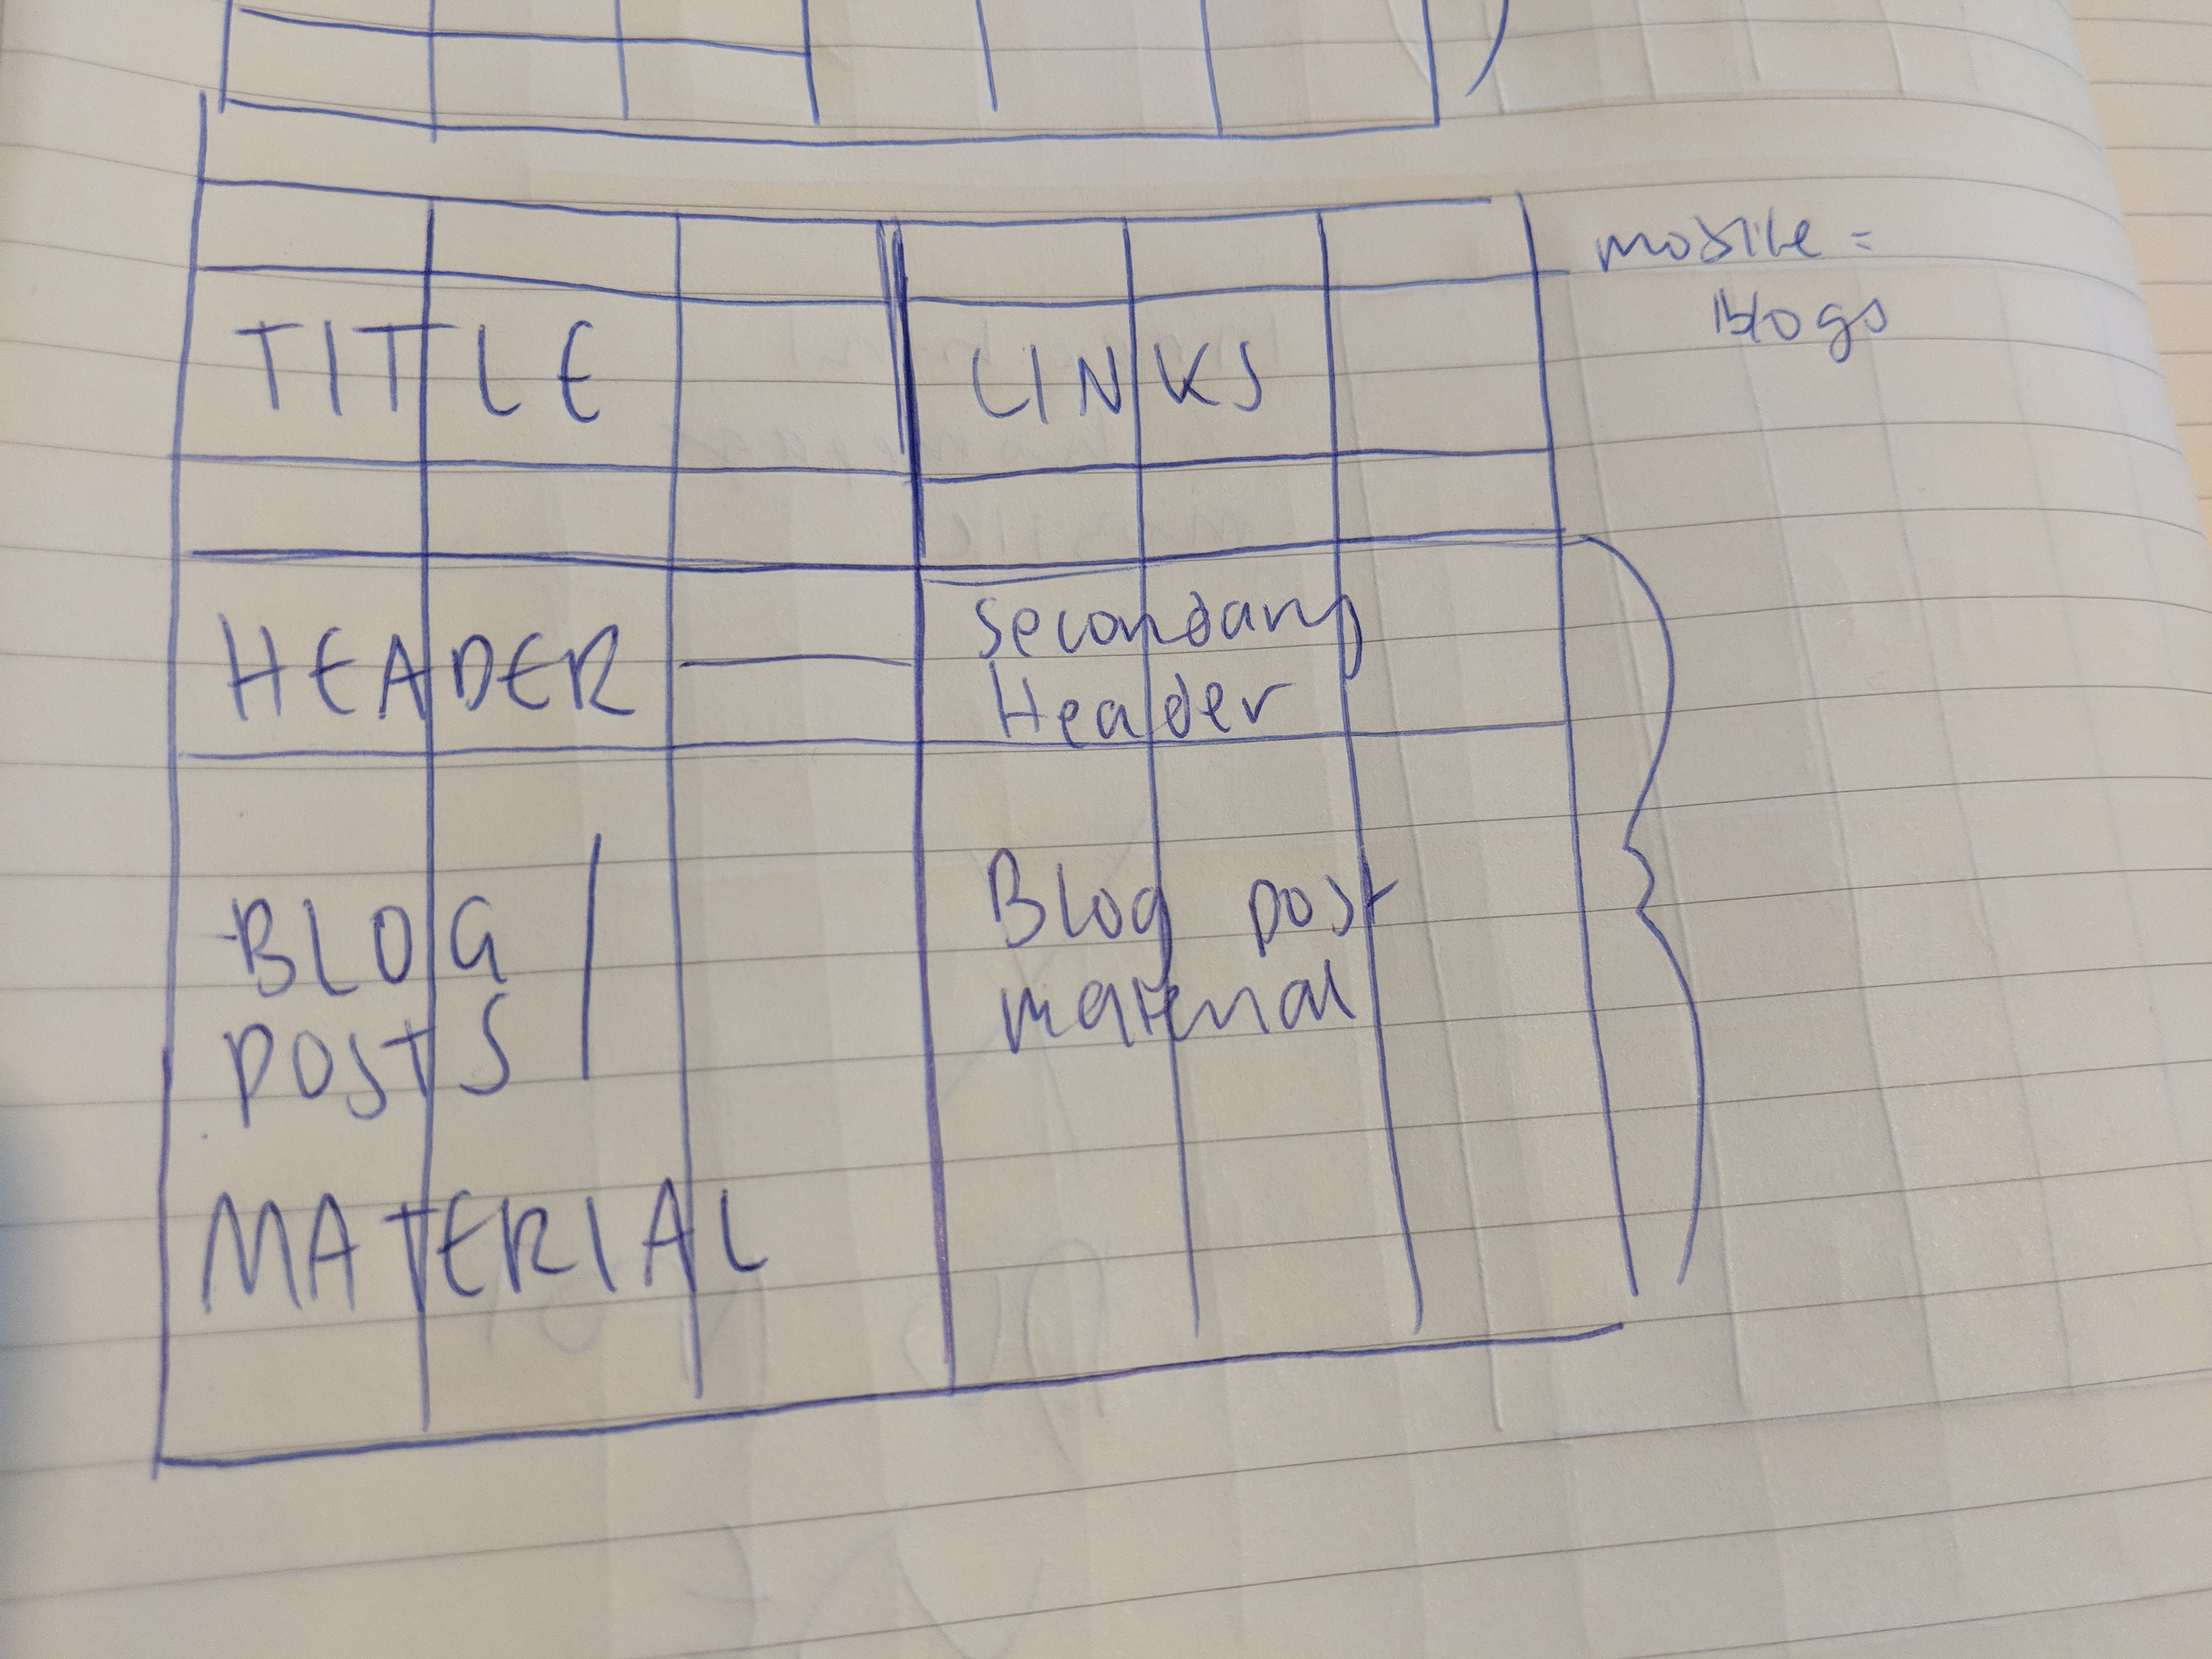 mobile =
Blogs
TITLE
LINKS
HEADER
Secondary
Header
BLOG
POSTS
MATERIAL
Blog post
material